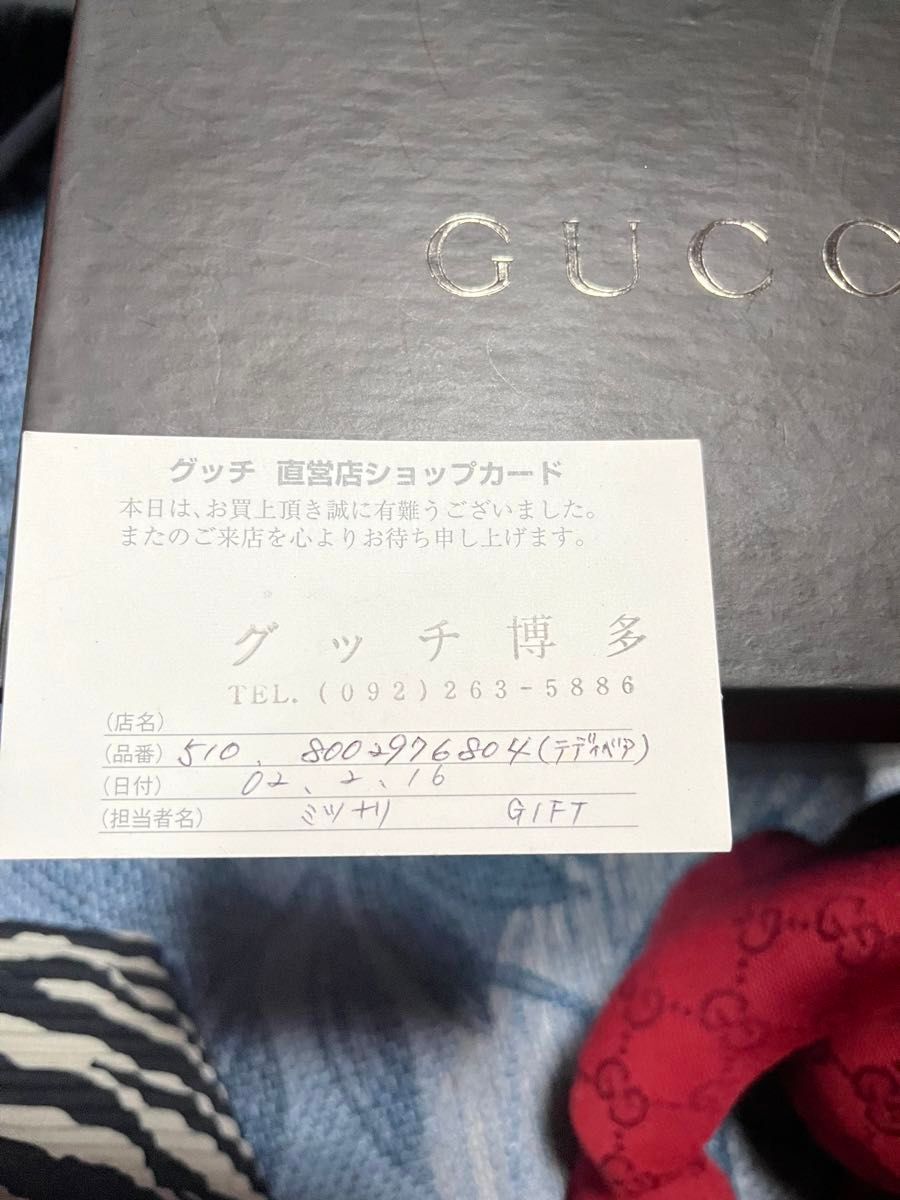 GUCC
グッチ 直営店ショップカード
本日は、お買上頂き誠に有難うございました。
またのご来店を心よりお待ち申し上げます。
グッチ博多
TEL. (092) 263-5886
(店名)
(品番) 510、8002976804(テディベア)
(日付) 02、2、16
(担当者名) ミツナリ GIFT